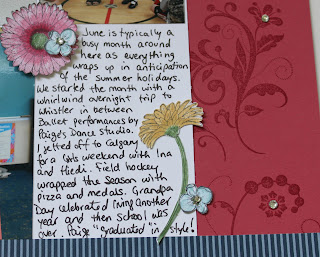 June is typically a
busy month around
here as everything
wraps up in anticipation
of the Summer holidays.
We started the month with a
whirlwind overnight trip to
Whistler in between
Ballet performances by
Paige's Dance Studio.
I jetted off to Calgary
for a Girls weekend with Ina
and Heidi. Field hockey
wrapped the season with
pizza and medals. Grandpa
Day celebrated living another
year and then School was
over. Paige "graduated" in style!